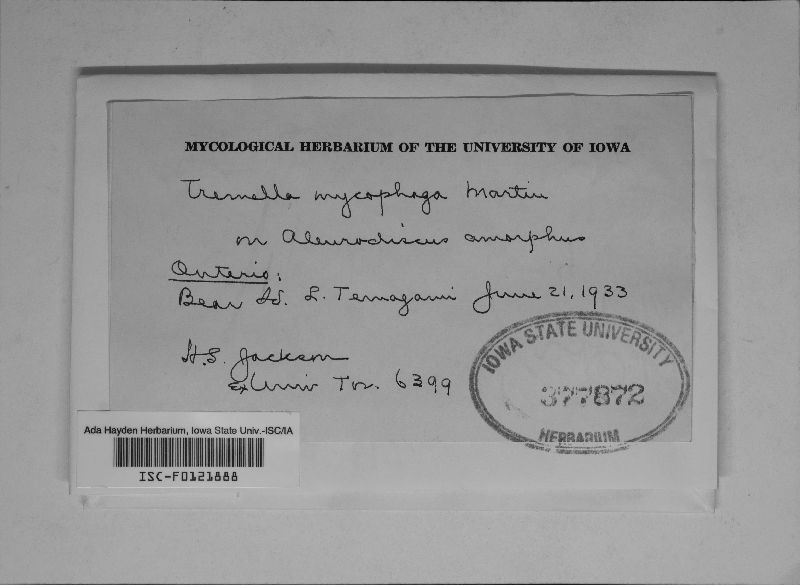 MYCOLOGICAL HERBARIUM OF THE UNIVERSITY OF IOWA
Tremella mycophaga Martin
on Aleurodiscus amorphus
Ontario:
Bear Id. L. Temagami June 21, 1933
H.S. Jackson
Ex Univ Tor. 6399
IOWA STATE UNIVERSITY
377872
HERBARIUM
Ada Hayden Herbarium, Iowa State Univ.-ISC/IA
ISC-F0121888